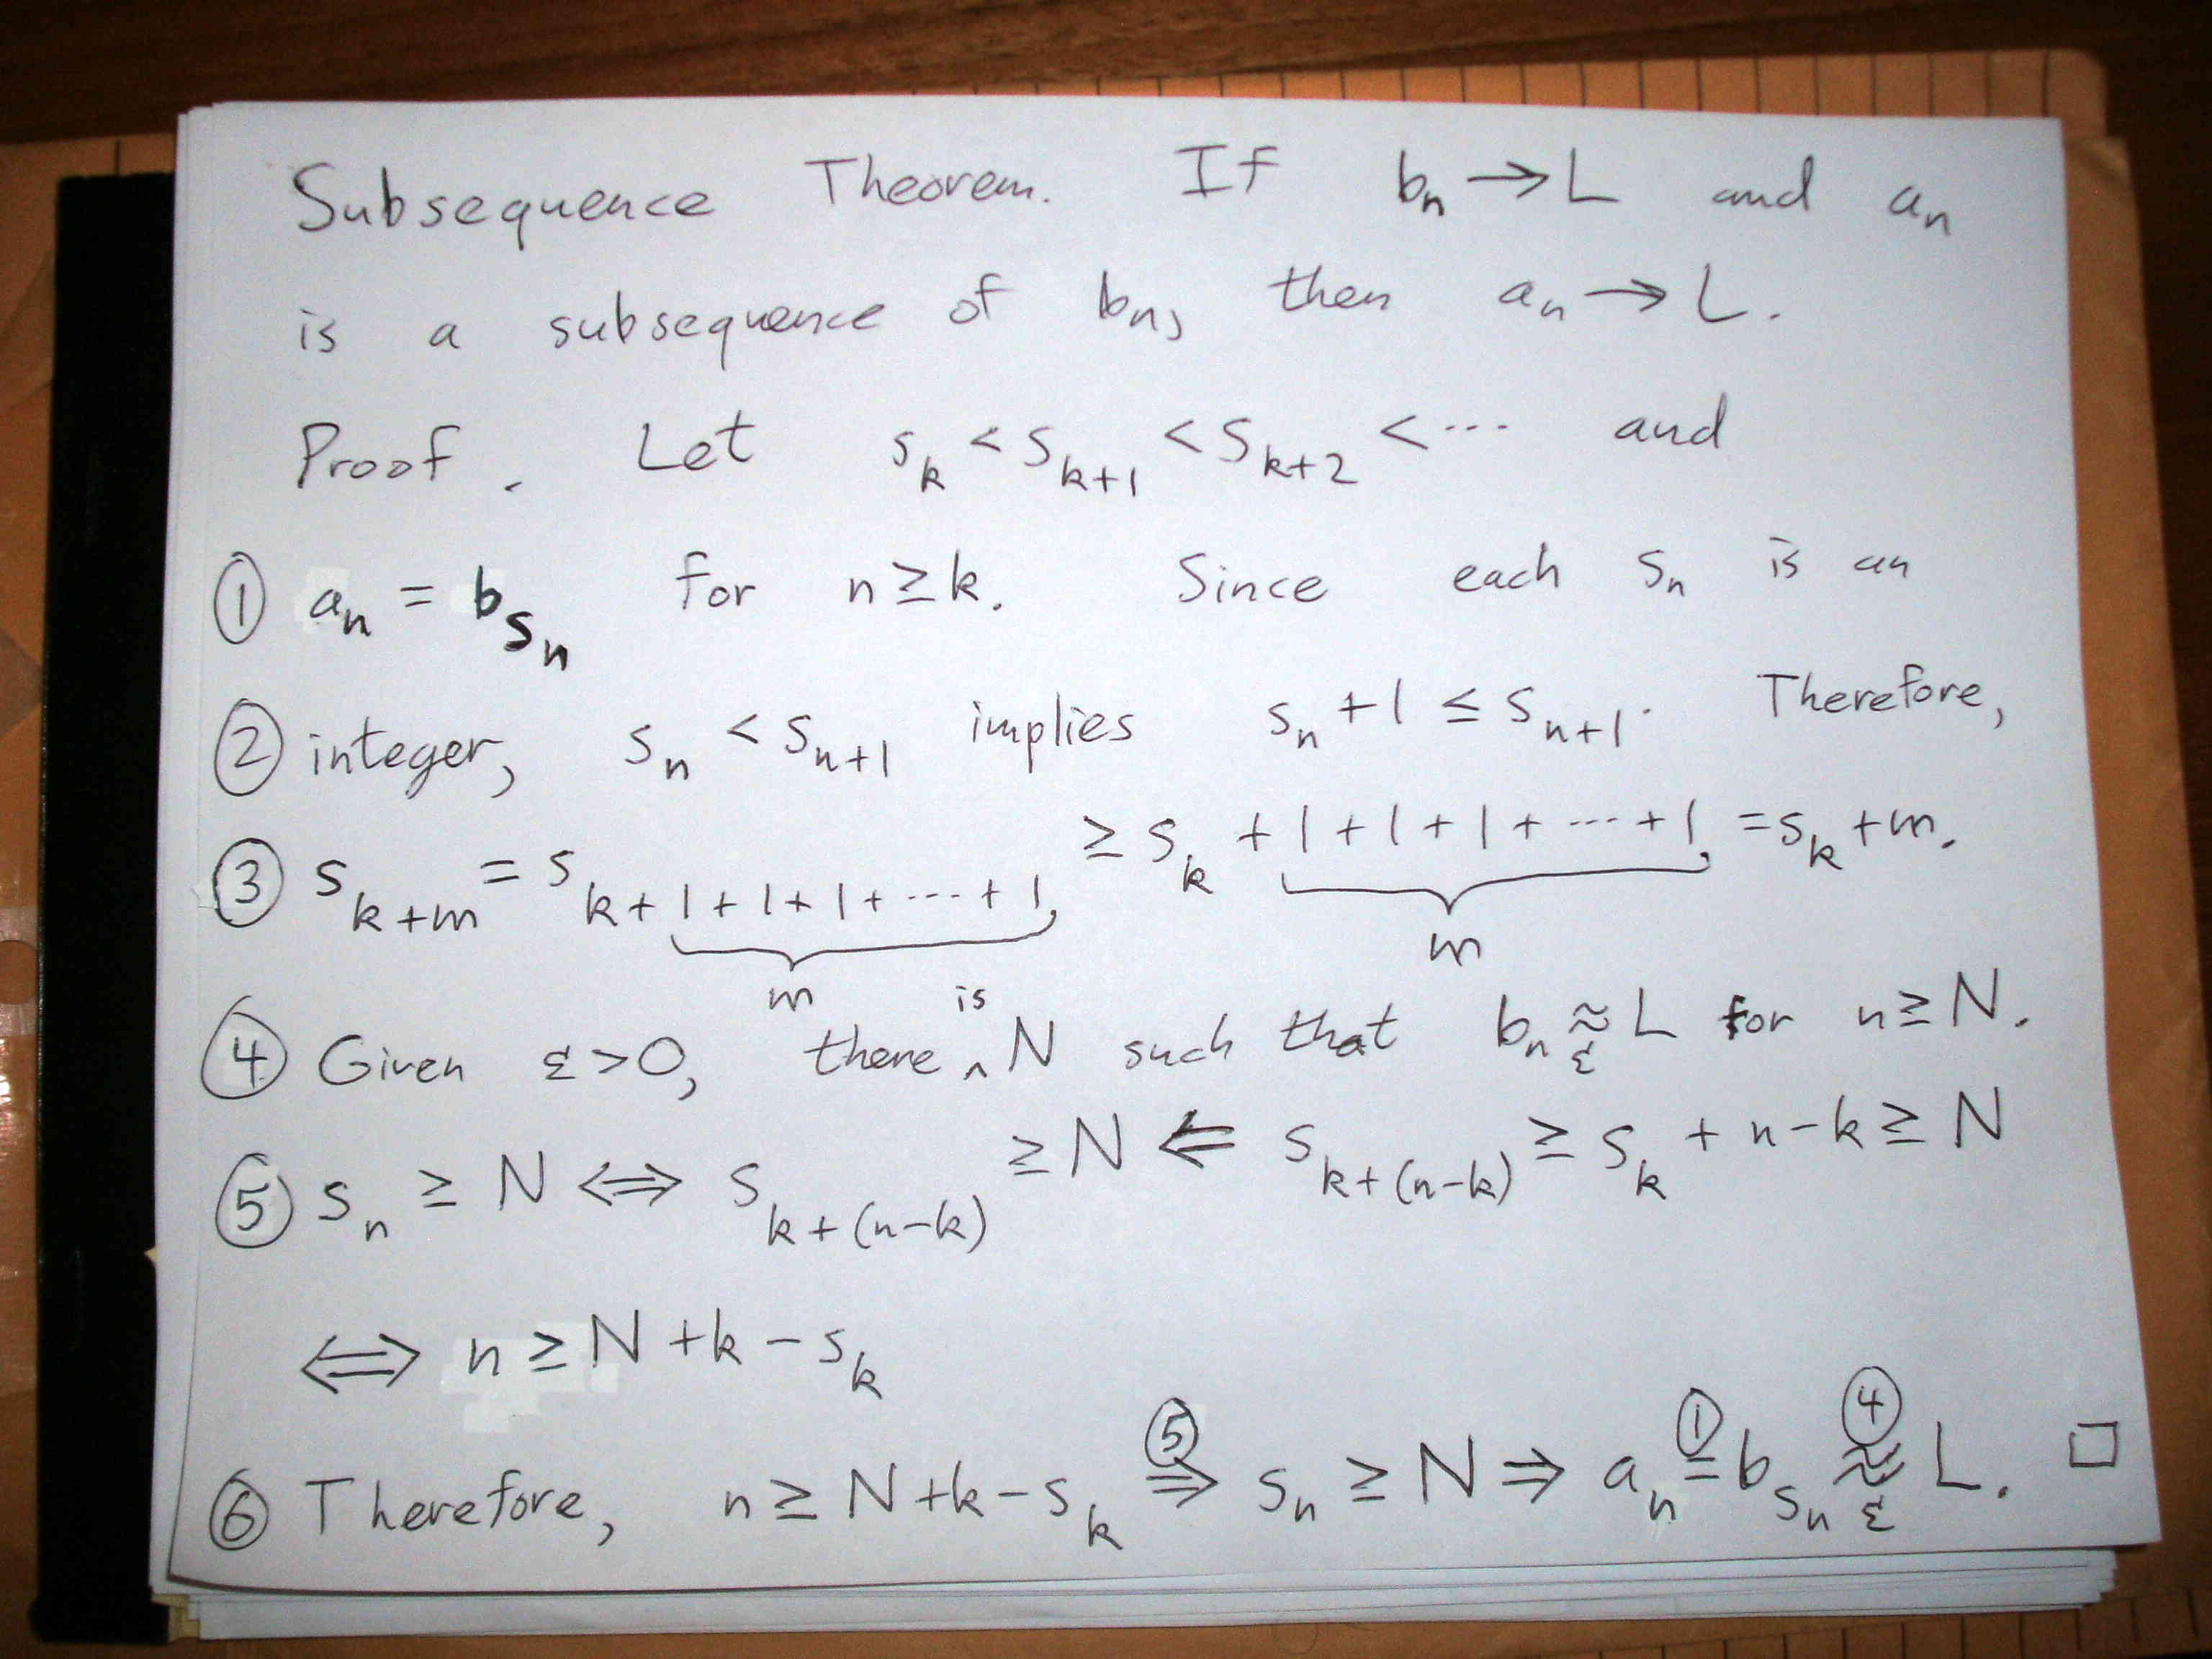 Subsequence Theorem. If bₙ → L and aₙ
is a subsequence of bₙ, then aₙ → L.
Proof. Let s_k < s_{k+1} < s_{k+2} < ⋯ and
① aₙ = b_{sₙ} for n ≥ k. Since each sₙ is an
② integer, sₙ < s_{n+1} implies sₙ + 1 ≤ s_{n+1}. Therefore,
③ s_{k+m} = s_{k+1+1+1+⋯+1} ≥ s_k + 1+1+1+⋯+1 = s_k + m.
m m
④ Given ε > 0, there is N such that bₙ ≈_ε L for n ≥ N.
⑤ sₙ ≥ N ⟺ s_{k+(n-k)} ≥ N ⟸ s_{k+(n-k)} ≥ s_k + n-k ≥ N
⟺ n ≥ N + k - s_k
⑥ Therefore, n ≥ N + k - s_k ⇒^⑤ sₙ ≥ N ⇒ aₙ =^① b_{sₙ} ≈_ε^④ L. □